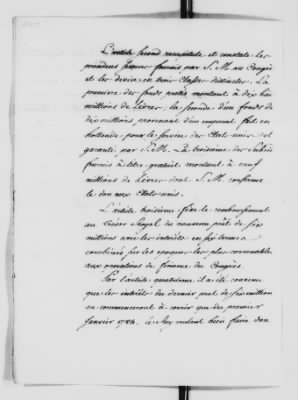 L'article second récapitule et constate les
secours fournis par S. M. au Congrès
et les divise en trois classes distinctes. La
première des fonds prêtés montant à dix huit
millions de Livres; la seconde d'un fonds de
dix millions, provenant d'un emprunt fait en
hollande, pour le service des Etats-unis et
garanti par S. M. La troisieme des subsides
fournis à titre gratuit montant à neuf
millions de Livres dont S. M. confirme
le don aux Etats-unis.
L'article troisieme fixe le remboursement
au trésor Royal du nouveau prêt de six
millions avec les intérêts en six termes
combinés sur les époques les plus convenables
aux opérations de finance du Congrès.
Par l'article quatrieme il a été convenu
que les intérêts du dernier prêt de six million
ne commenceront à courir que du premier
Janvier 1784. le Roy voulant bien faire don